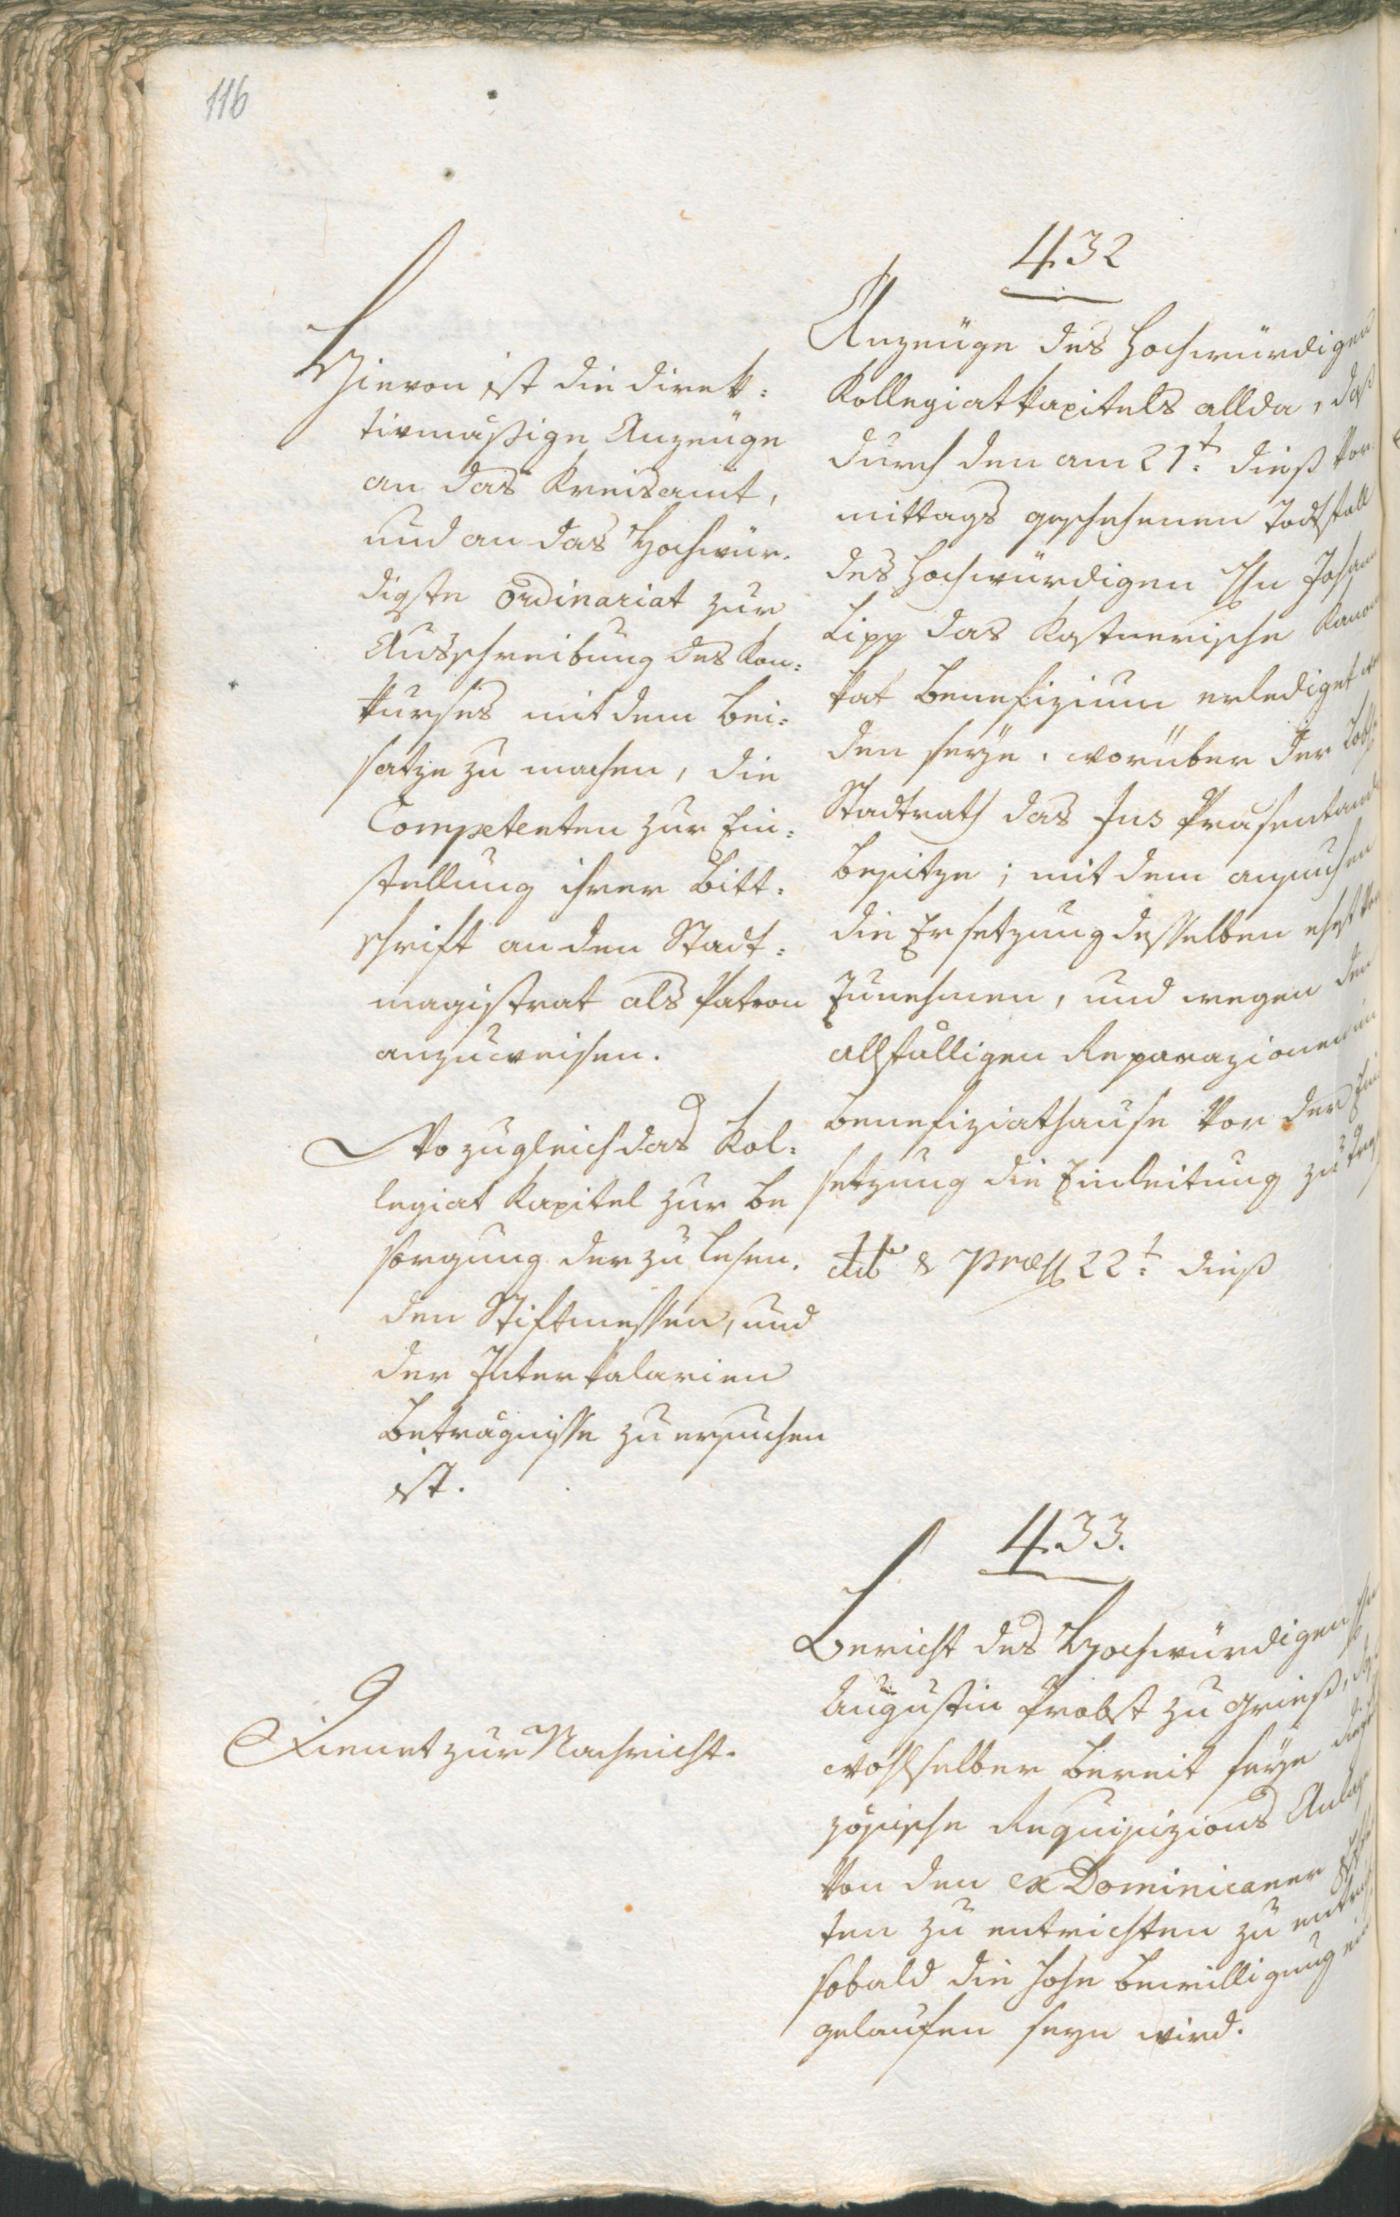 116
432
Anzeige des Hochwürdigen
Kollegiatkapitels allda, daß
durch den am 21t. dieß Vor-
mittags geschehenen Todfall
des Hochwürdigen Hn Johann
Lipp das Kastnerische
kat Benefizium erlediget
den seye. worüber der Löbl:
Stadtrath das Jus Präsentandi
besitze; mit dem ansuchen
die Ersetzung desselben ehst
zunehmen, und wegen den
allfälligen Reparazionen im
Benefiziathause vor der
setzung die Einleitung zu
& Præss 22t. dieß
Hievon ist die direk:
tivmäßige Anzeüge
an das Kreisamt,
und an das Hochwür.
digste Ordinariat zur
Ausschreibung des Kon:
kurses mit dem Bei:
satze zu machen, die
Competenten zur Ein:
stellung ihrer Bitt:
schrift an den Stadt:
magistrat als Patron
anzuweisen.
Wo zugleich das Kol:
legiat Kapitel zur Be
sorgung der zu lesen.
den Stiftmessen, und
der Interkalarien
Beträgnisse zu ersuchen
ist.
433.
Bericht des Hochwürdigen Hn
Augustin Probst zu Grieß, daß
wohlselber bereit seye die
zösische Requisizions Anlage
von den ex Dominicaner
ten zu entrichten zu
sobald die hohe Bewilligung ein
gelaufen seyn wird.
Dienet zur Nachricht.